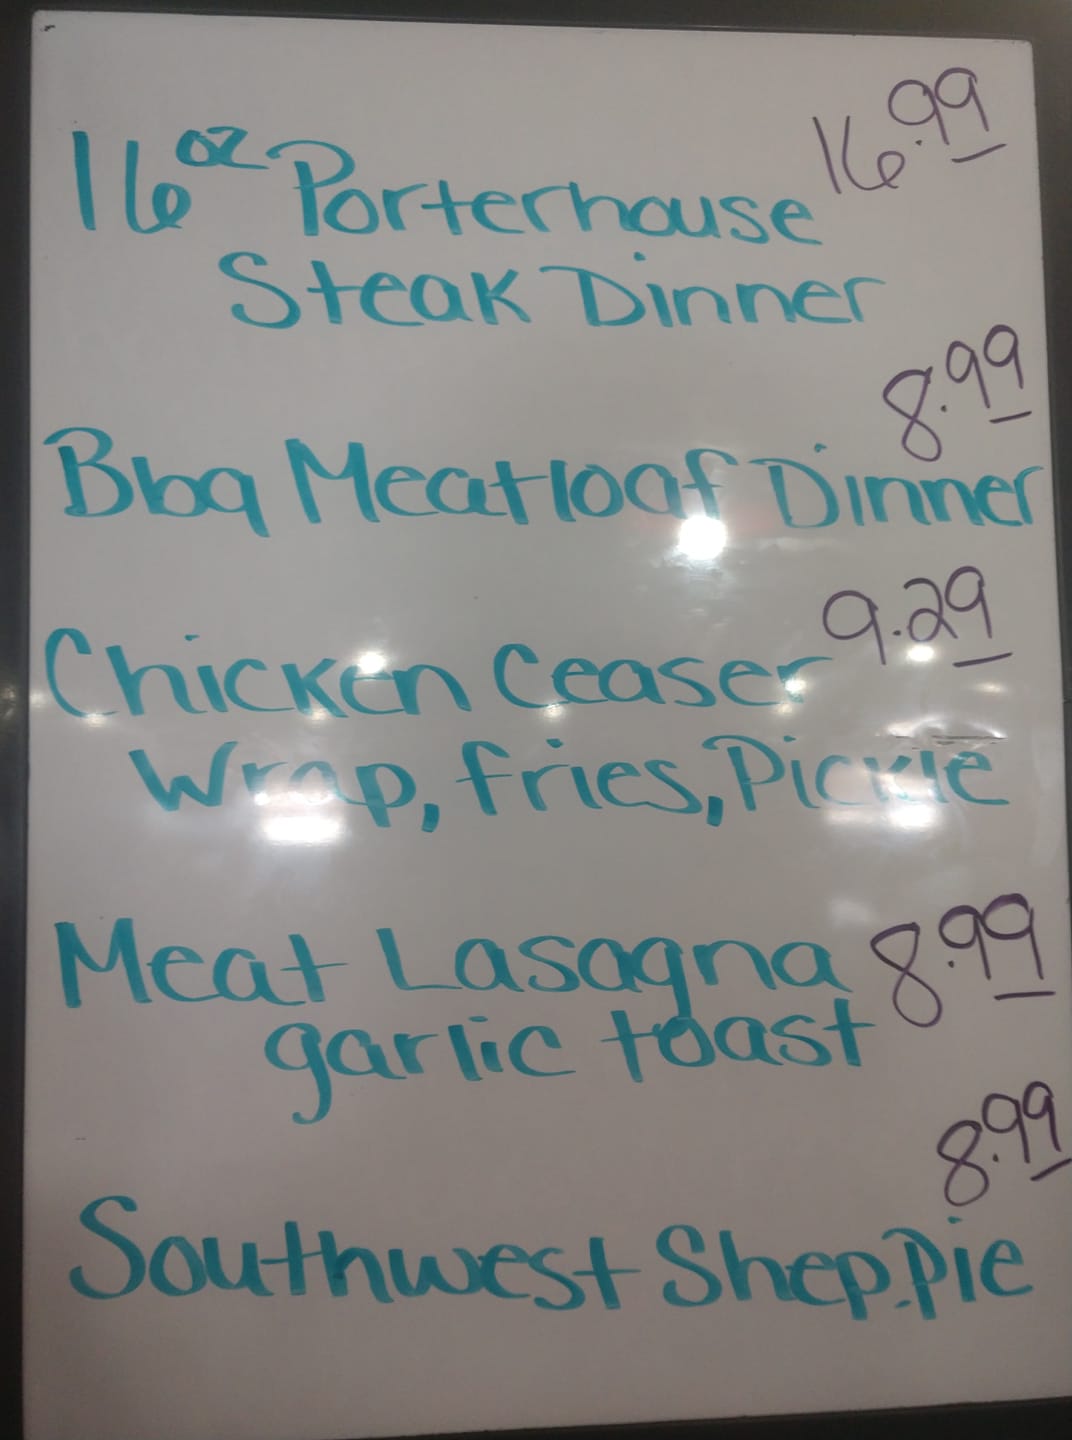 16 oz Porterhouse 16.99
Steak Dinner
8.99
Bbq Meatloaf Dinner
Chicken Ceaser 9.29
Wrap, fries, Pickle
Meat Lasagna 8.99
garlic toast
8.99
Southwest Shep.Pie